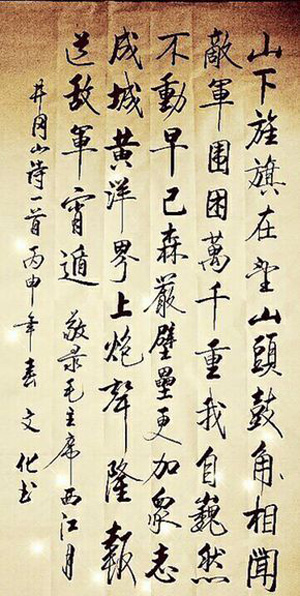 山下旌旗在望山頭鼓角相聞
敵軍围困萬千重我自巍然
不動早已森嚴壁壘更加衆志
成城黄洋界上炮聲隆報
道敌軍宵遁 敬录毛主席西江月
井冈山诗一首丙申年春文化书